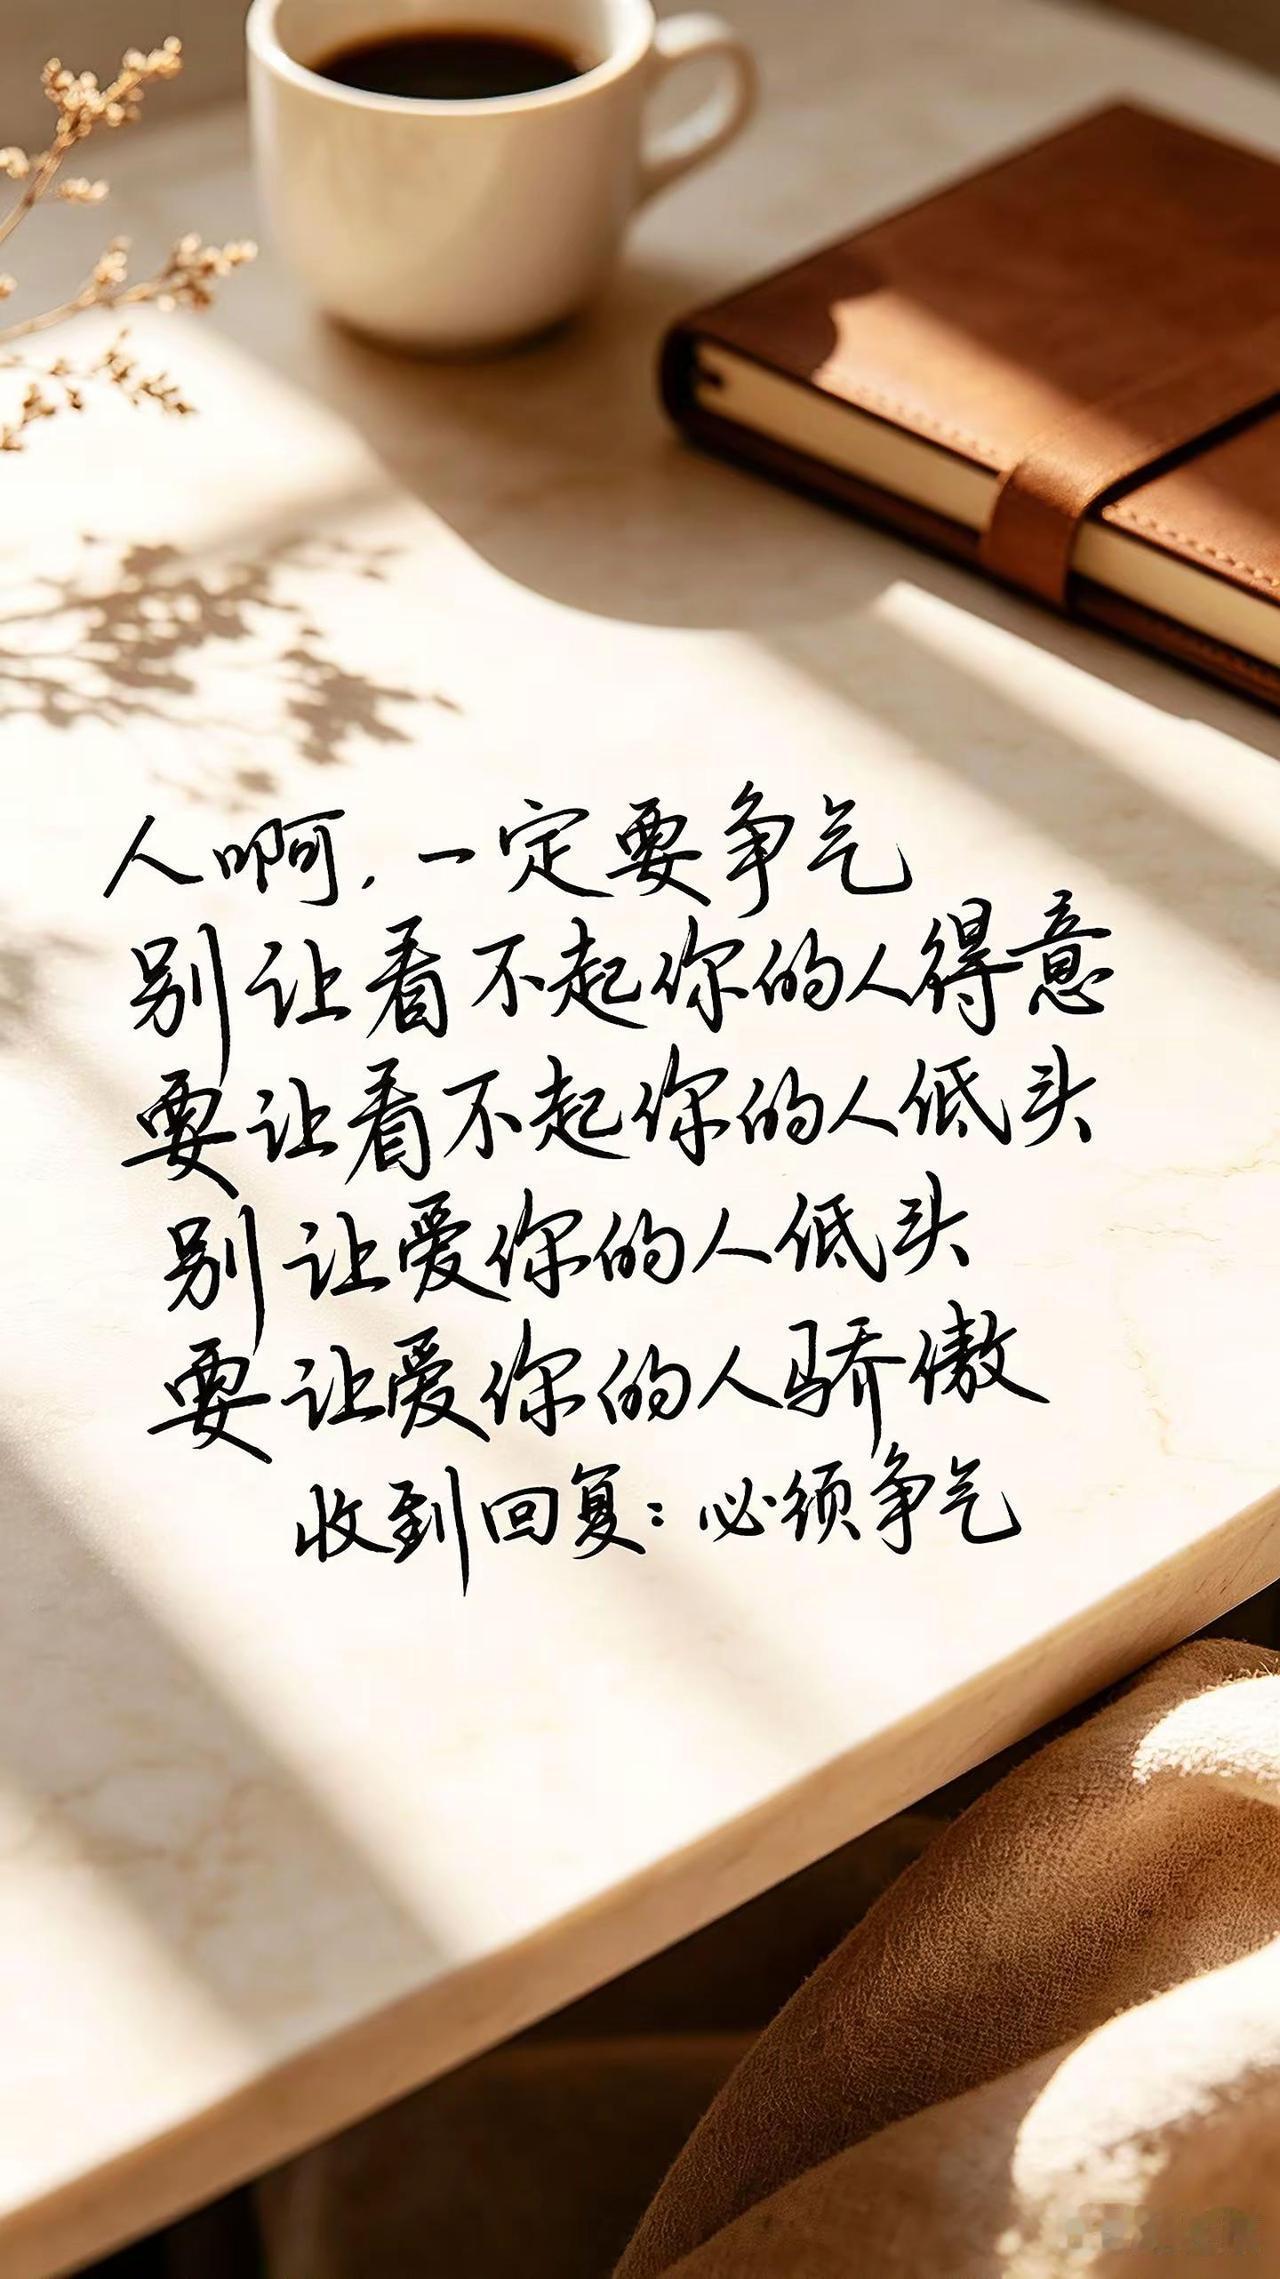 人啊，一定要争气
别让看不起你的人得意
要让看不起你的人低头
别让爱你的人低头
要让爱你的人骄傲
收到回复：必须争气